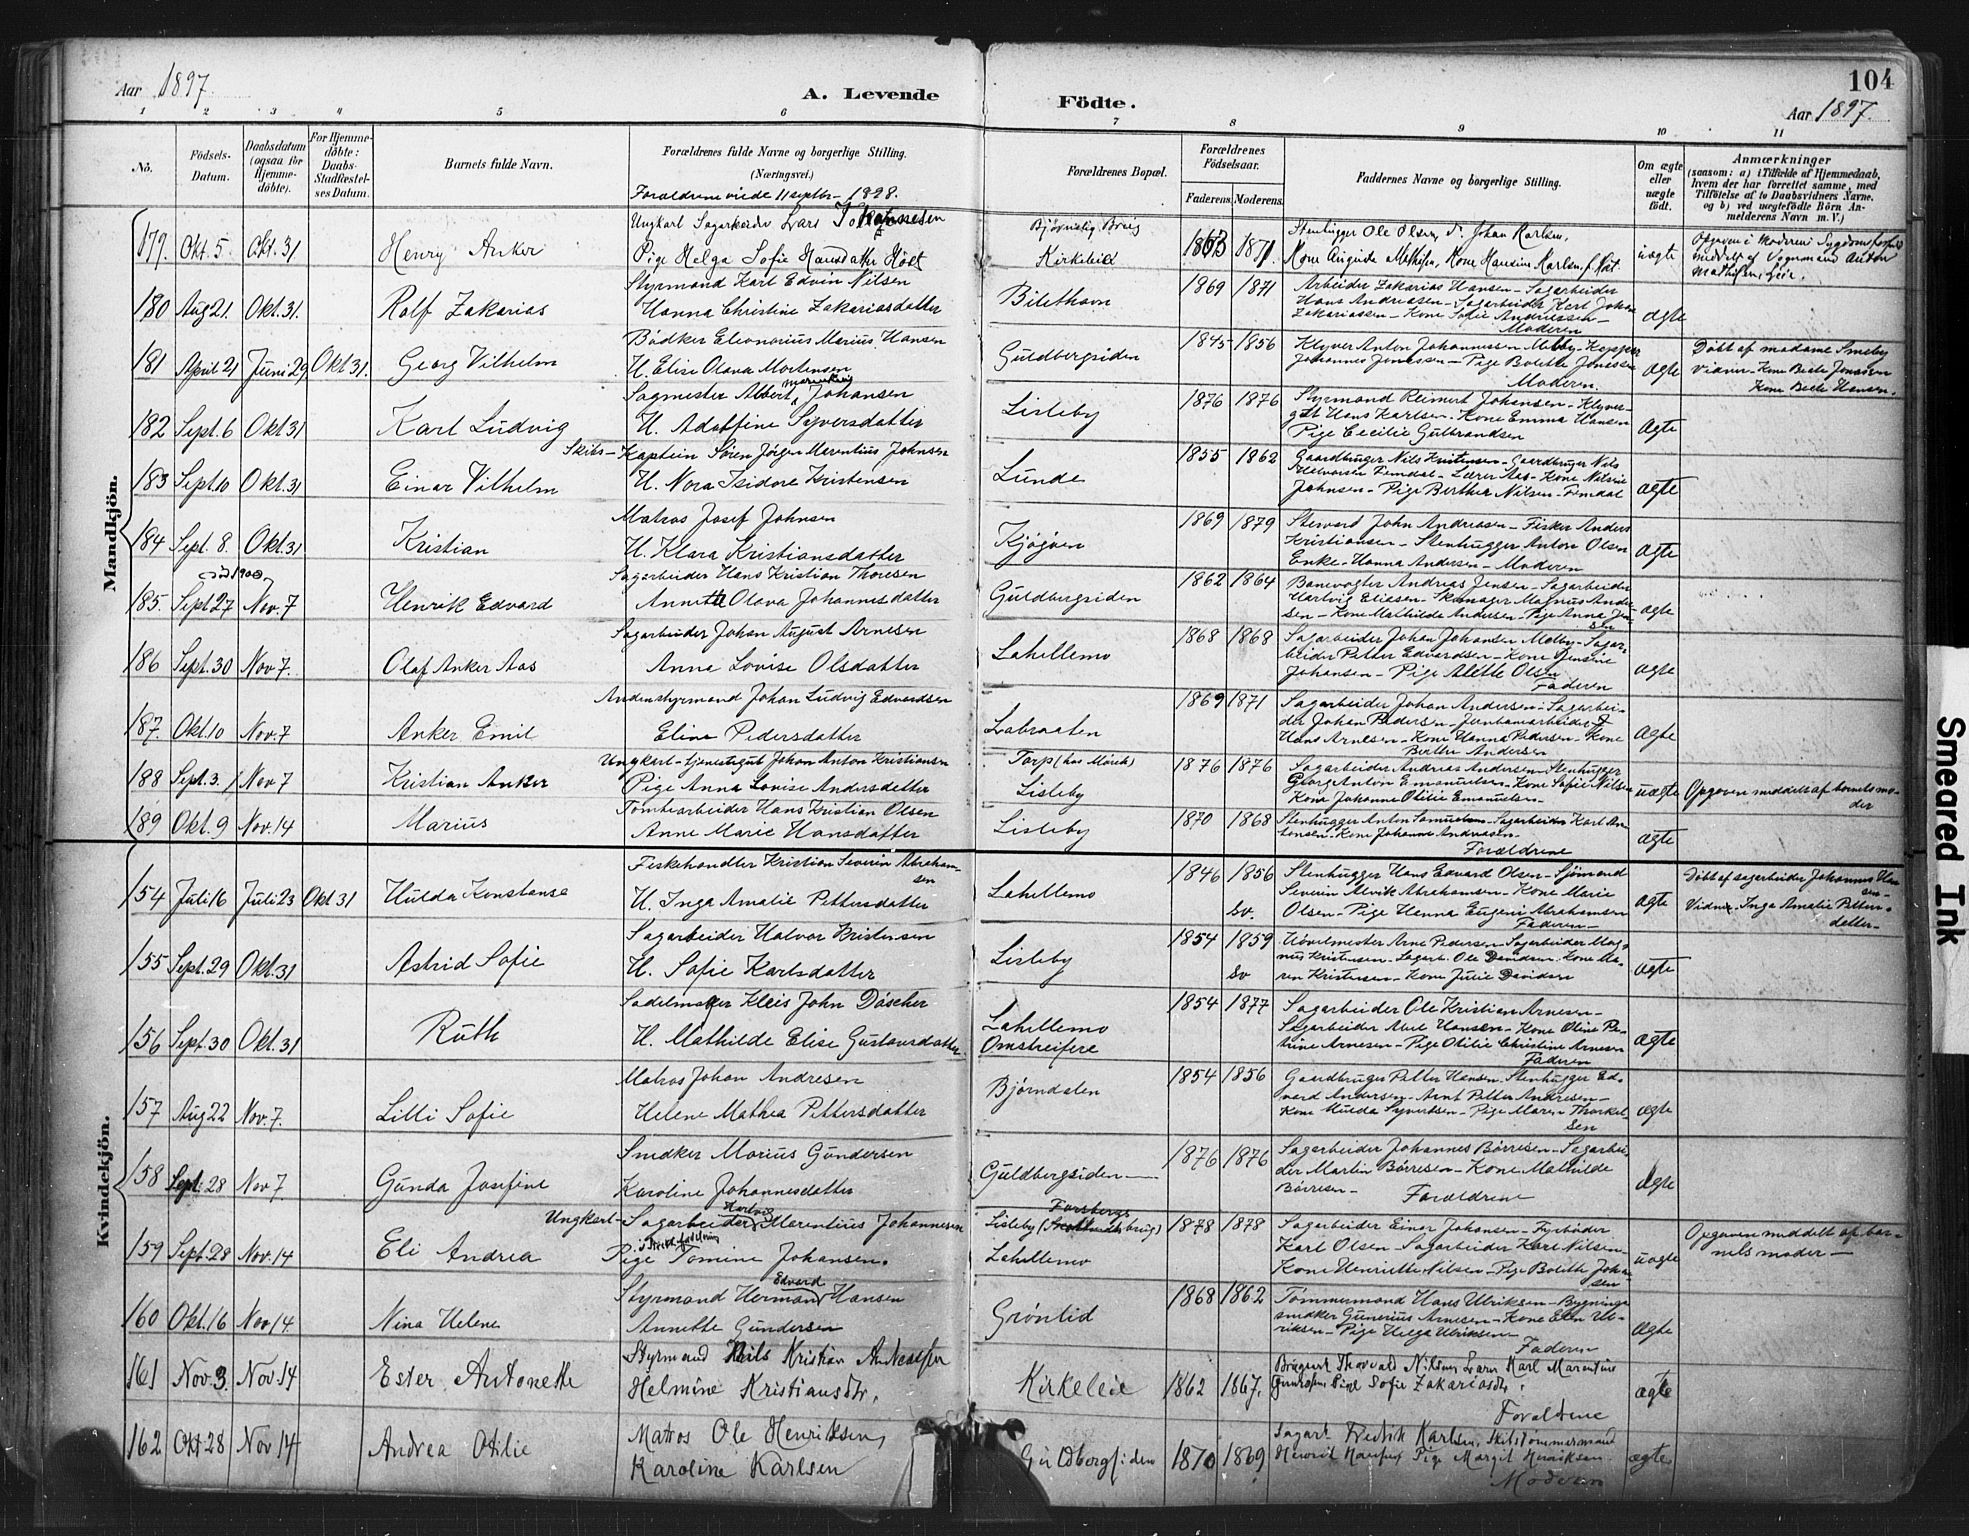 104
Aar 1897.
A. Levende
Födte.
Aar 1897.
1 2 3 4 5 6 7 8 9 10 11
No.
Födsels-
Datum.
Daabsdatum
(ogsaa for
Hjemme-
döbte).
For Hjemme-
döbte:
Daabs-
Stadfæstel-
ses Datum.
Barnets fulde Navn.
Forældrenes fulde Navne og borgerlige Stilling.
(Næringsvei.)
Forældrenes Bopæl.
Forældrenes
Födselsaar.
Faderens. Moderens.
Faddernes Navne og borgerlige Stilling.
Om ægte
eller
uægte
födt.
Anmærkninger
(saasom: a) i Tilfælde af Hjemmedaab,
hvem der har forrettet samme, med
Tilföielse af to Daabsvidners Navne,
og b) ved uægtefödte Börn An-
melderens Navn m. V.)
Mandkjön.
Forældrene viede 11 septbr 1898.
179. Okt. 5. Okt. 31 Henry Anker
Ungkarl Sagarbeider Lars Johannesen
Pige Helga Sofie Hansdatter
Kirkeleie
1871
Stenhugger Ole Olsen, Johan Karlsen,
uægte
180 Aug 21. Okt. 31. Rolf Zakarias
Styrmand Karl Edvin Nilsen
Hanna Christine Zakariasdatter
1869 1871
Arbeider Zakarias Hansen - Sagarbeider
Hans Andreasen - Sagarbeider Karl Johan
Zakariassen - Kone Sofie Andreassen -
Moderen
ægte
181 April 21 Juni 29 Okt 31. Georg Vilhelm
Bödker Eleonorius Marius Hansen
H. Elise Olava Mortensen
Guldbergsiden
1845 1856
Klyver Anton Johannesen Melby -
Johannes Jonassen - Pige Bolette Jonassen
Moderen.
ægte
Döbt af madame Smeby
Vidner - Kone Beate Jonassen
Kone Beate Hansen.
182 Sept. 6 Okt 31 Karl Ludvig
Sagmester Albert Johansen
H. Adolfine Syversdatter
Lisleby
1876 1876
Styrmand Reimert Johansen - Klyver-
gut Hans Karlsen - Kone Emma Hansen
Pige Cecilie Gulbrandsen
ægte
183 Sept. 10 Okt. 31 Einar Vilhelm
Skibs-Kaptein Sören Jörgen Marentius Johnsen
H. Nora Isidore Kristensen
Lunde
1855 1862
Gaardbruger Nils Kristensen - Gaardbruger Nils
Halvorsen Femdal - Lærer Aas - Kone Nilsine
Johnsen - Pige Berthe Nilsen - Femdal
ægte
184 Sept. 8. Okt. 31 Kristian
Matros Josef Johnsen
H. Klara Kristiansdatter
Kjöjöen
1869 1879
Steward John Andreasen - Fisker Anders
Kristiansen - Stenhugger Anton Olsen
Enke - Hanna Andersen - Moderen
ægte
185. Sept 27 Nov. 7 Henrik Edvard
Sagarbeider Hans Kristian Thoresen
Annette Olava Johannesdatter
Guldbergsiden
1862 1864
Banevogter Andreas Jensen - Sagarbeider
Hartvig Eliasen - Skomager Magnus Ander-
sen - Kone Mathilde Andersen - Pige Anna Jen-
sen
ægte
186 Sept. 30 Nov. 7. Olaf Anker Aas
Sagarbeider Johan August Arnesen
Anna Lovise Olsdatter
Lahellemo
1868 1868
Sagarbeider Johan Johansen Melby - Sagar-
beider Petter Edvardsen - Kone Jensine
Johansen - Pige Alette Olsen
Faderen
ægte
187. Okt. 10 Nov. 7 Anker Emil
Andenstyrmand Johan Ludvig Edvardsen
Eline Pedersdatter
Labraaten
1869 1871
Sagarbeider Johan Andersen - Sagarbei-
der Johan Pedersen - Jernbanearbeider
Hans Arnesen - Kone Hanna Pedersen - Kone
Berthe Andersen
ægte
188 Sept. 3. Nov 7 Kristian Anker
Ungkarl - tjenestegut Johan Anton Kristiansen
Pige Anna Lovise Andersdatter
Torp (hos Mörck)
Lisleby
1876 1876
Sagarbeider Andreas Andersen - Stenhugger
Georg Anton Emanuelsen - Kone Sofie Nilsen
Kone Johanne Otilie Emanuelsen -
uægte
Opgaven meddelt af barnets mo-
der
189 Okt. 9 Nov. 14 Marius
Tomtearbeider Hans Kristian Olsen
Anne Marie Hansdatter
Lisleby
1870 1868
Stenhugger Anton Samuelsen - Sagarbeider Karl An-
tonsen - Kone Johanne Andreasen -
Forældrene
ægte
Kvindekjön.
154 Juli 16 Juli 23 Okt 31 Hulda Konstanse
Fiskehandler Kristian Severin Abraham-
sen
H. Inga Amalie Pettersdatter
Lahellemo
1846 1856
Sv.
Stenhugger Hans Edvard Olsen - Sjömand
Severin Alvik Abrahamsen - Kone Marie
Olsen - Pige Hanna Eugeni Abrahamsen
Faderen -
ægte
Döbt af sagarbeider Johannes Han-
sen -
Vidner - Inga Amalie Petters-
datter -
155 Sept. 29 Okt. 31 Astrid Sofie
Sagarbeider Halvor Kristensen
H. Sofie Karlsdatter
Lisleby
1854 1859
Sv
Hövelmester Arne Pedersen - Sagarbeider Mag-
nus Kristensen - Sagarb. Ole Davidsen - Kone Ma-
ren Kristensen - Kone Julie Davidsen
ægte
156 Sept. 30 Okt. 31 Ruth
Sadelmager Kleis John Döscher
H. Mathilde Elise Gustavsdatter
Lahellemo
Omstreifere
1854 1877
Sagarbeider Ole Kristian Arnesen -
Sagarbeider Abel Hansen - Kone Oline Pe-
trine Arnesen - Pige Otilie Christine Arnesen
Faderen
ægte
157 Aug 22 Nov. 7. Lilli Sofie
Matros Johan Andresen
Helene Mathea Pettersdatter
Björndalen
1854 1856
Gaardbruger Petter Hansen - Stenhugger Ed-
vard Andersen - Arnt Petter Andresen -
Kone Hulda Syvertsen - Pige Maren Thorkel-
sen
ægte
158 Sept. 28 Nov 7. Gunda Josefine
Snedker Marius Gundersen
Karoline Johannesdatter
Guldbergsiden -
1876 1876
Sagarbeider Johannes Börresen - Sagarbei-
der Martin Börresen - Kone Mathilde
Börresen -
Forældrene
ægte
159 Sept. 28 Nov. 14 Eli Andrea
Ungkarl - Sagarbeider Hartvig Marentius Johannesen
Pige Tomine Johansen.
Forsbergs
Lisleby (brug)
Lahellemo
1878 1878
Sagarbeider Einar Johansen - Fyrböder
Karl Olsen - Sagarbeider Karl Nilsen -
Kone Henriette Nilsen - Pige Bolette Johan-
sen
uægte
Opgaven meddelt af bar-
nets moder -
160 Okt. 16 Nov 14. Nina Helene
Styrmand Herman Edvard Hansen
Annette Gundersen
Grönlid
1868 1862
Tömmermand Hans Ulriksen - Bygnings-
snedker Gunerius Arnesen - Kone Elen Ul-
riksen - Pige Helga Ulriksen
Faderen
ægte
161 Nov. 3. Nov. 14 Ester Antonette
Styrmand Nils Kristian Andreassen
Helmine Kristiansdtr.
Kirkeleie
1862 1867.
Thorvald Nilsen, Karl Marentius
Pige Sofie Zakariasdtr.
Forældrene
ægte
162 Okt 28 Nov 14 Andrea Otilie
Matros Ole Henriksen,
Karoline Karlsen
Guldbergsiden
1870 1869
Sagarb. Fredrik Karlsen, Skibstömmermand
Henrik Hansen, Pige Margit Henriksen.
Moderen
ægte
Smeared Ink